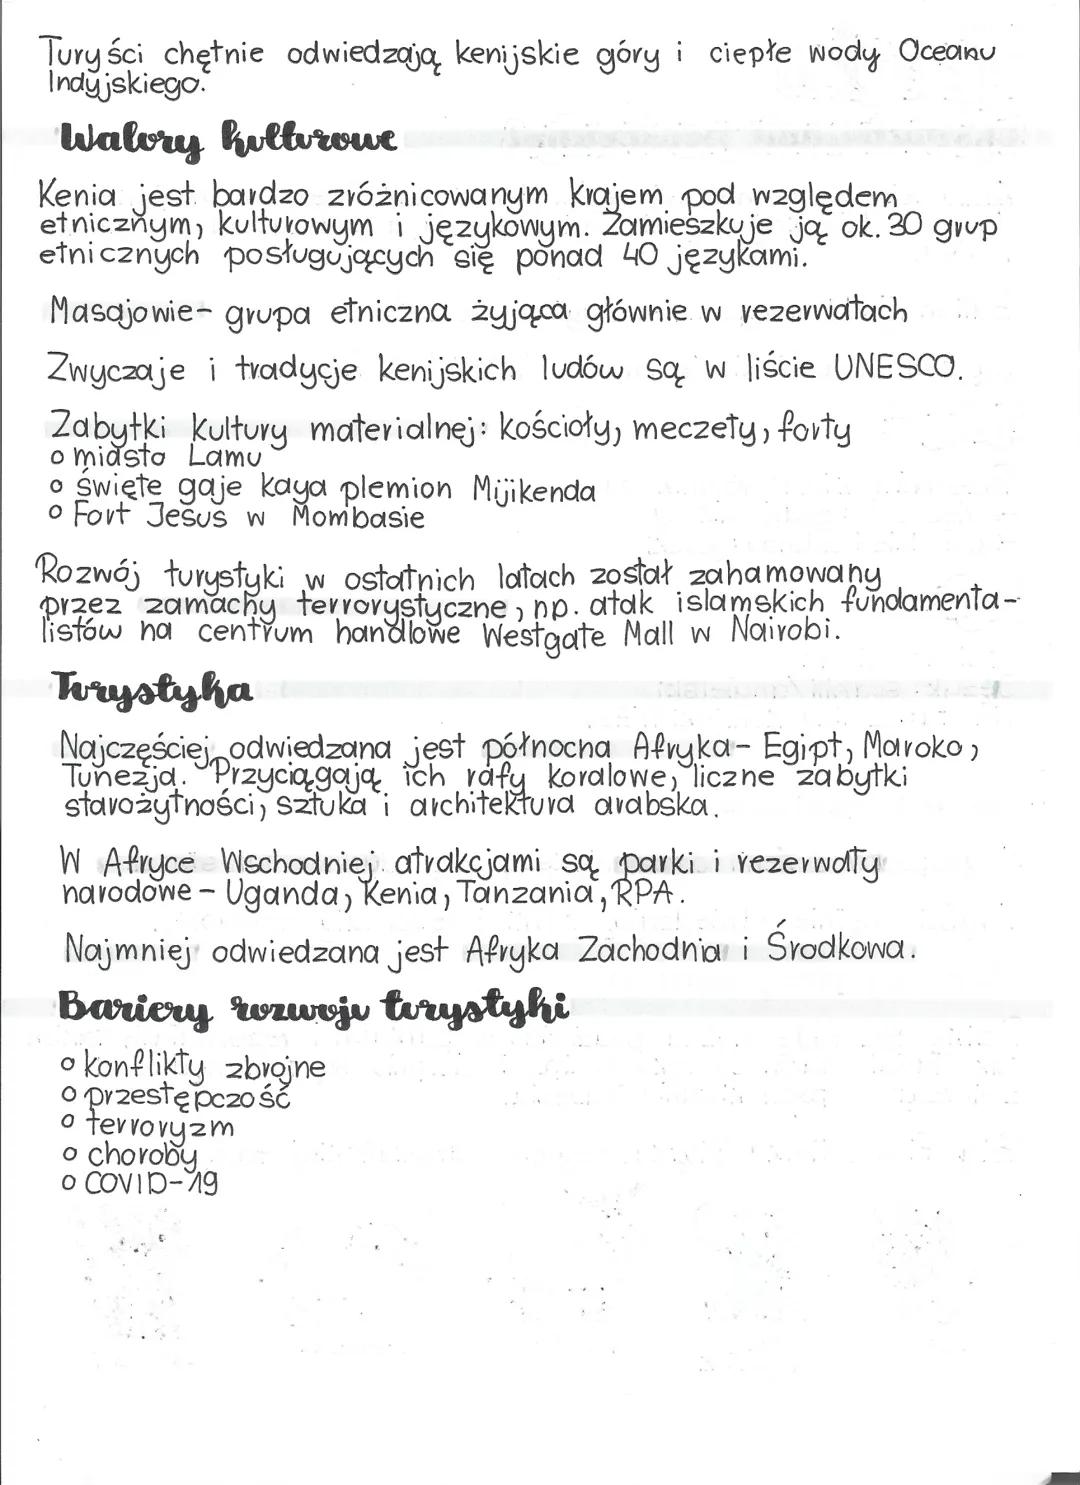 Turyści chętnie odwiedzają kenijskie góry i ciepłe wody Oceanu
Indyjskiego.
Walory kulturowe
Kenia jest bardzo zróżnicowanym krajem pod względem
etnicznym, kulturowym i językowym. Zamieszkuje ją ok. 30 grup
etnicznych posługujących się ponad 40 językami.
Masajowie- grupa etniczna żyjąca głównie w rezerwatach
Zwyczaje i tradycje kenijskich ludów są w liście UNESCO.
Zabytki kultury materialnej: kościoły, meczety, forty
o miasto Lamu
o święte gaje kaya plemion Mijikenda
o Fort Jesus w Mombasie
Rozwój turystyki w ostatnich latach został zahamowany
przez zamachy terrorystyczne, np. atak islamskich fundamenta-
listów na centrum handlowe Westgate Mall w Nairobi.
Turystyka
Najczęściej odwiedzana jest północna Afryka- Egipt, Maroko,
Tunezja. Przyciągają ich rafy koralowe, liczne zabytki
starożytności, sztuka i architektura arabska.
W Afryce Wschodniej atrakcjami są parki i rezerwaty
narodowe - Uganda, Kenia, Tanzania, RPA.
Najmniej odwiedzana jest Afryka Zachodnia i Środkowa.
Bariery rozwoju turystyki
o konflikty zbrojne
o przestępczość
o terroryzm
o choroby
o COVID-19